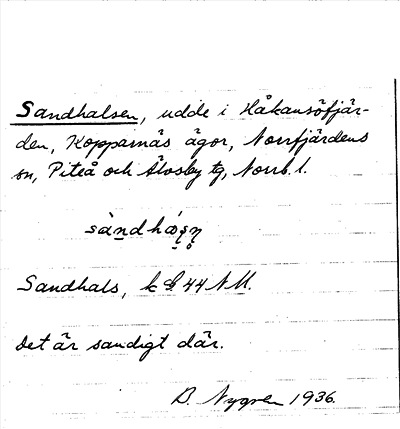 Sandhalsen, udde i Håkansöfjär-
den, Kopparnäs ägor, Norrfjärdens
sn, Piteå och Älvsby tg, Norrb. l.
Sandhals, k 44 N
Det är sandigt där.
B. Nygren 1936.